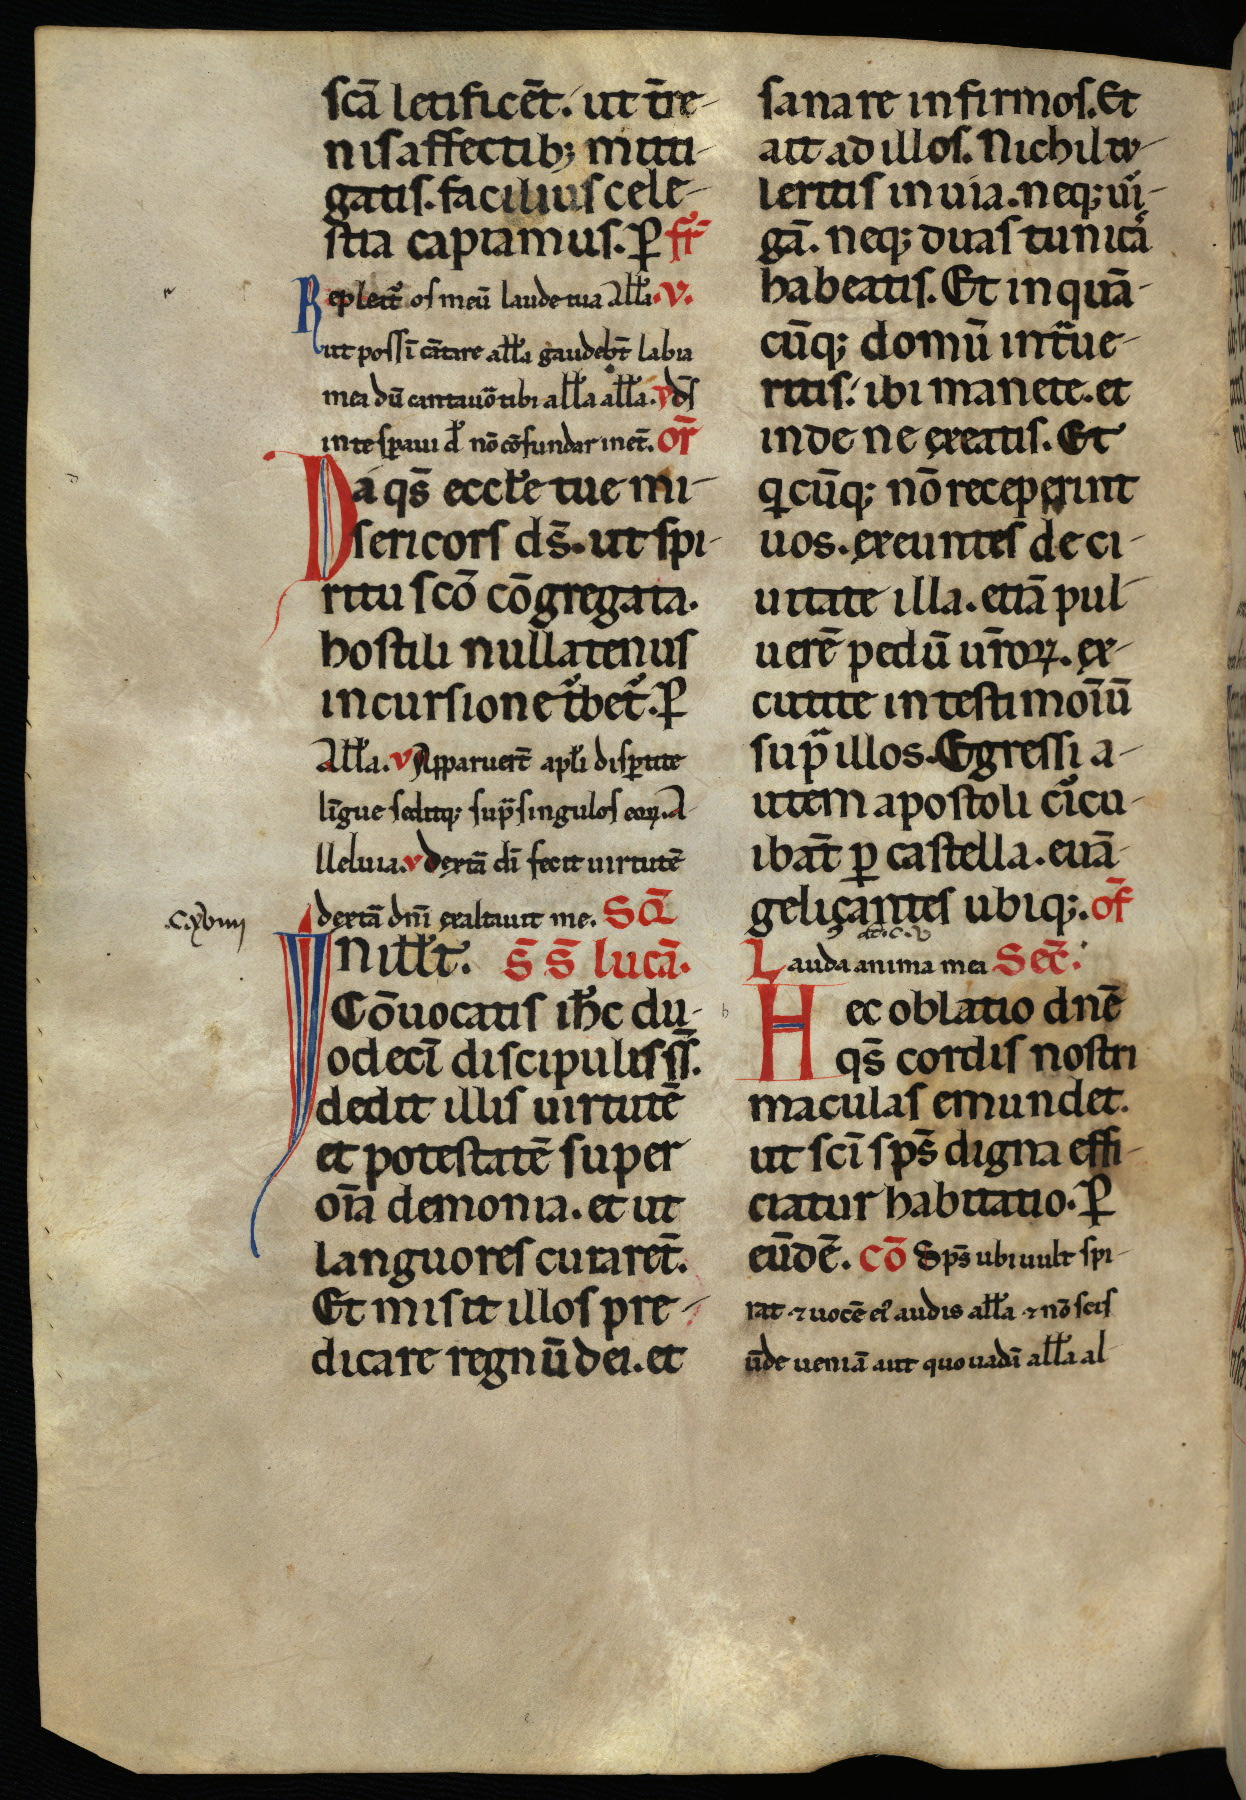 scā letificēt. ut t̄re-
nis affectib; miti-
gatis. facilius cele-
stia capiamus. P̲ fr̄
Repleat᷑ os meū laude tua all̄a. V.
ut possī cātare all̄a gaudebt̄ labia
mea dū cantauo᷑ tibi all̄a all̄a. V ds̄
in te sꝑaui d̄ nō cōfundar inet̄. or̄
Da qs̄ eccl̄e tue mi-
sericors ds̄. ut spi-
ritu scō cōgregata.
hostili nullatenus
incursione t᷑bet᷑. P̲
All̄a. V Apparuert̄ apl̄i disꝑtite
līgue seditq; sup̄ singulos eoꝝ. A
lleluia. V dextā dī fecit uirtutē
dextā dn̄i exaltauit me. Sc̄a
.cxviiij
In ill̄t. s̄ s̄ lucā.
Cōuocatis ih̄c du-
odecī discipulis ss̄.
dedit illis uirtutē
et potestatē super
oīa demonia. et ut
languores curaret̄.
Et misit illos pre-
dicare regnū dei. et
sanare infirmos. Et
ait ad illos. Nichil tu-
leritis in uia. neq; uir-
gā. neq; duas tunicas
habeatis. Et in quā-
cūq; domū int̄ue-
ritis. ibi manete. et
inde ne exeatis. Et
qcūq; nō receperint
uos. exeuntes de ci-
uitate illa. etiā pul-
uerē pedū ur̄oꝝ. ex-
cutite in testimoīū
sup̄ illos. Egressi a-
utem apostoli cīcu-
ibāt ꝑ castella. euā-
geliçantes ubiq;. of̄
Lauda anima mea Sec̄.
Hec oblatio dn̄e
qs̄ cordis nostri
maculas emundet.
ut scī sps̄ digna effi-
ciatur habitatio. P̲
eūdē. cō Sps̄ ubi uult spi-
rat ⁊ uocē ei᷒ audis all̄a ⁊ nō scis
ūde ueniā aut quo uadī all̄a al